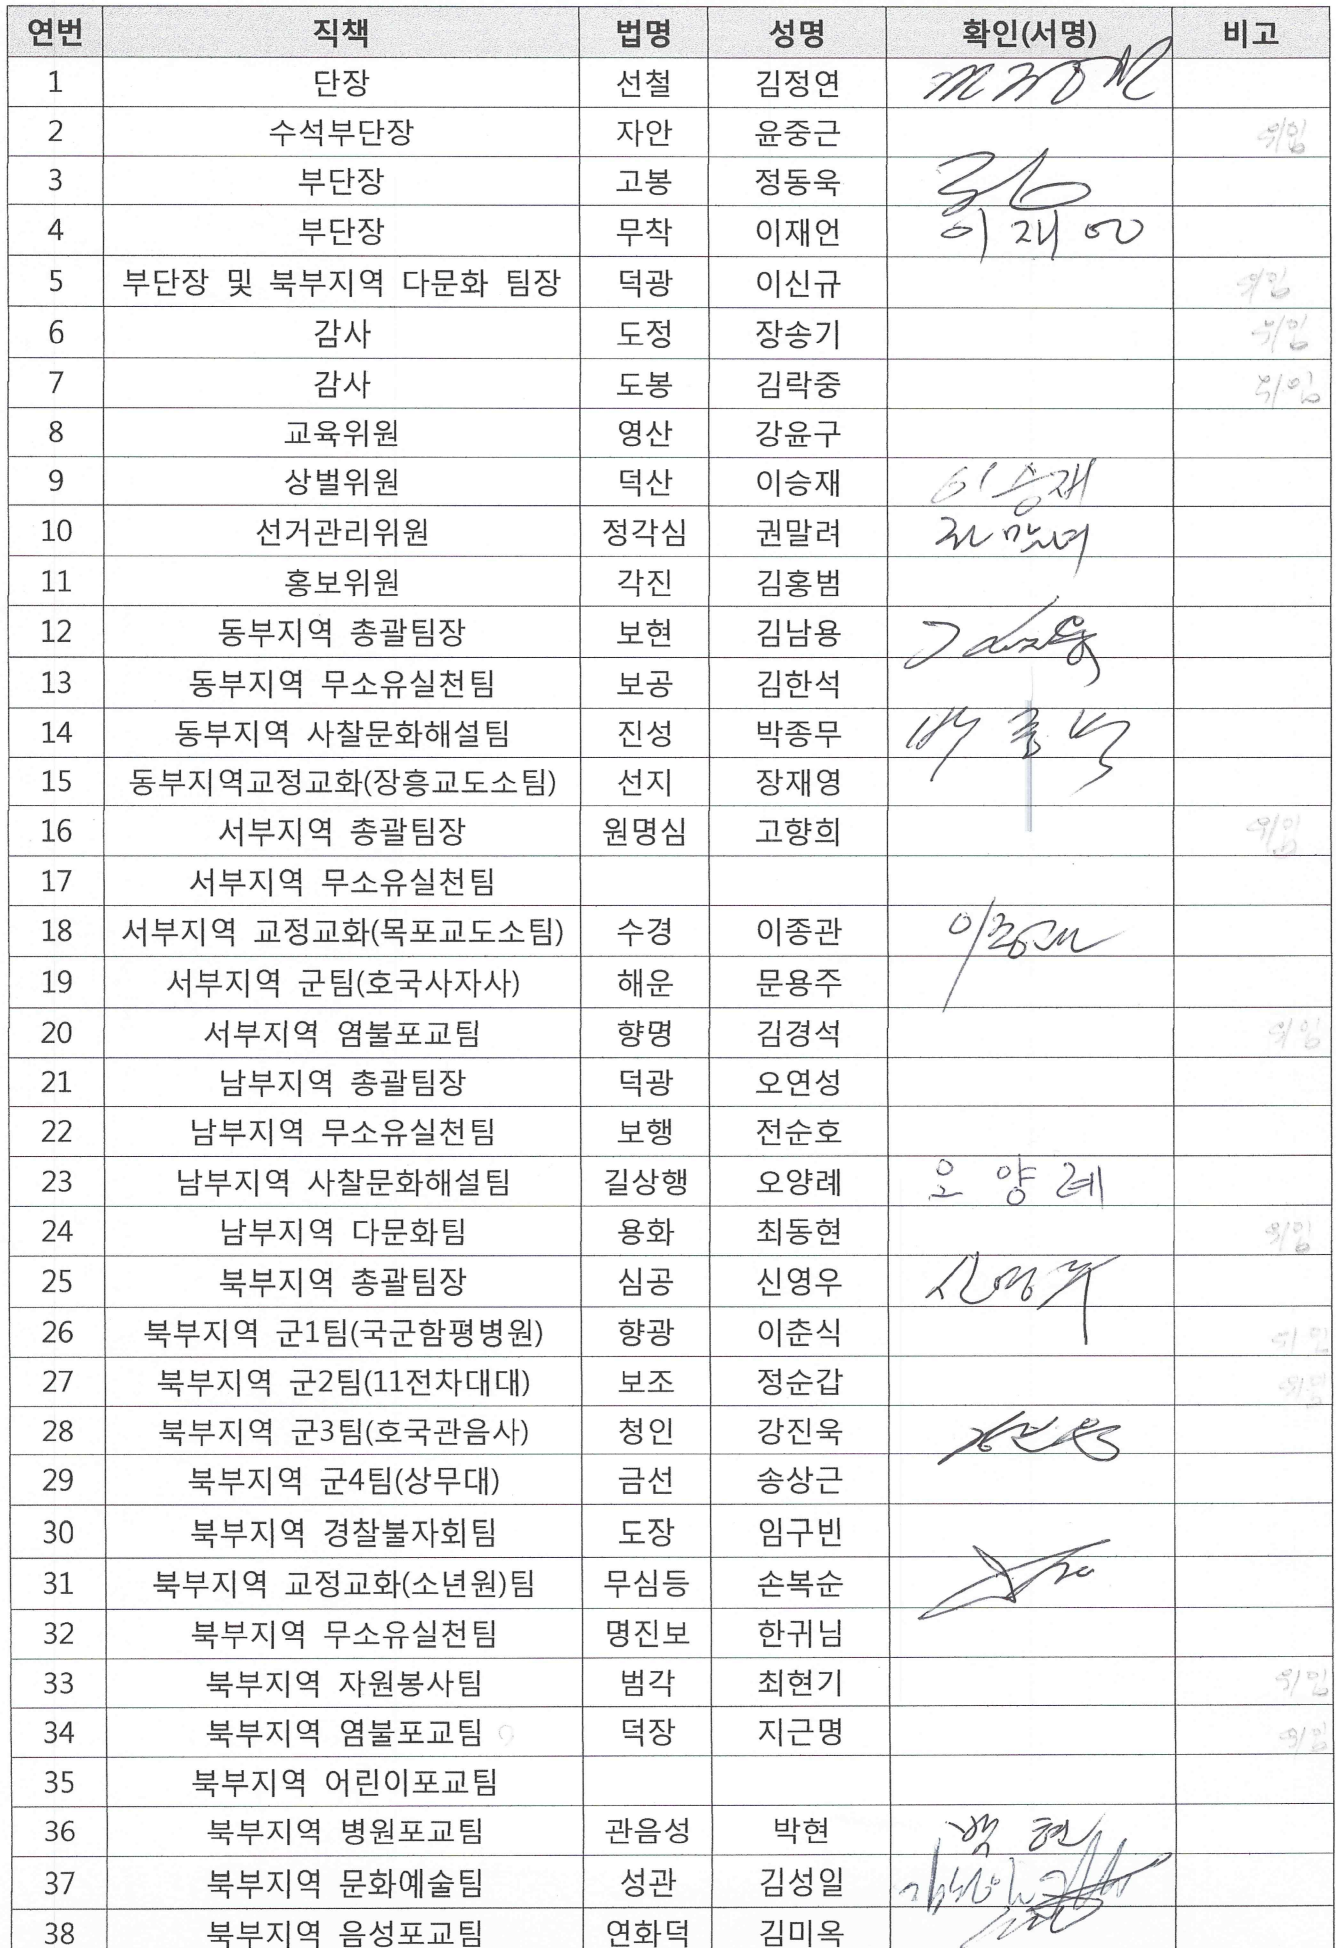 연번 직책 법명 성명 확인(서명) 비고
1 단장 선철 김정연
2 수석부단장 자안 윤중근 위임
3 부단장 고봉 정동욱
4 부단장 무착 이재언 이재언
5 부단장 및 북부지역 다문화 팀장 덕광 이신규 위임
6 감사 도정 장송기 위임
7 감사 도봉 김락중 위임
8 교육위원 영산 강윤구
9 상벌위원 덕산 이승재 이승재
10 선거관리위원 정각심 권말려
11 홍보위원 각진 김홍범
12 동부지역 총괄팀장 보현 김남용
13 동부지역 무소유실천팀 보공 김한석
14 동부지역 사찰문화해설팀 진성 박종무
15 동부지역교정교화(장흥교도소팀) 선지 장재영
16 서부지역 총괄팀장 원명심 고향희 위임
17 서부지역 무소유실천팀
18 서부지역 교정교화(목포교도소팀) 수경 이종관
19 서부지역 군팀(호국사자사) 해운 문용주
20 서부지역 염불포교팀 향명 김경석 위임
21 남부지역 총괄팀장 덕광 오연성
22 남부지역 무소유실천팀 보행 전순호
23 남부지역 사찰문화해설팀 길상행 오양례 오양례
24 남부지역 다문화팀 용화 최동현 위임
25 북부지역 총괄팀장 심공 신영우 신영우
26 북부지역 군1팀(국군함평병원) 향광 이춘식 위임
27 북부지역 군2팀(11전차대대) 보조 정순갑 위임
28 북부지역 군3팀(호국관음사) 청인 강진욱
29 북부지역 군4팀(상무대) 금선 송상근
30 북부지역 경찰불자회팀 도장 임구빈
31 북부지역 교정교화(소년원)팀 무심등 손복순
32 북부지역 무소유실천팀 명진보 한귀님
33 북부지역 자원봉사팀 범각 최현기 위임
34 북부지역 염불포교팀 덕장 지근명 위임
35 북부지역 어린이포교팀
36 북부지역 병원포교팀 관음성 박현 박현
37 북부지역 문화예술팀 성관 김성일
38 북부지역 음성포교팀 연화덕 김미옥